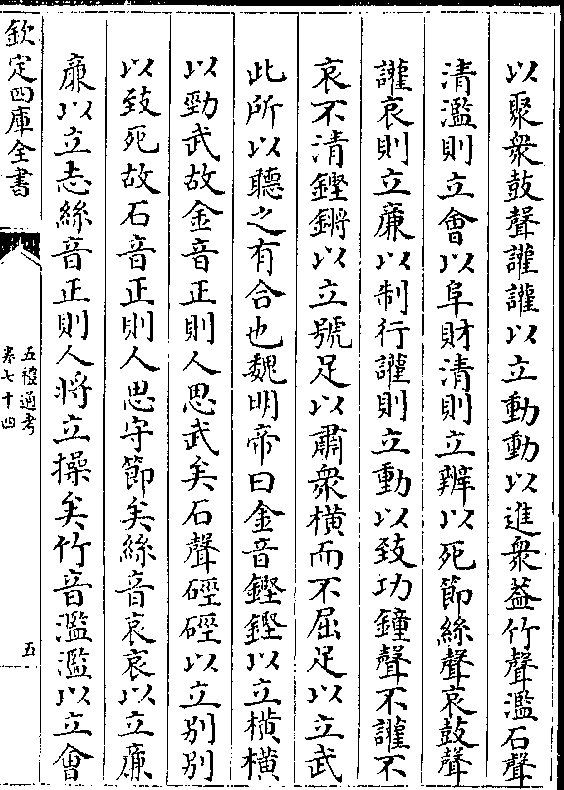 以聚衆鼓聲讙讙以立動動以進衆蓋竹聲濫石聲
清濫則立會以阜財清則立辨以死節絲聲哀鼓聲
讙哀則立廉以制行讙則立動以致功鐘聲不讙不
哀不清鏗鏘以立號足以肅衆橫而不屈足以立武
此所以聽之有合也魏明帝曰金音鏗鏗以立橫橫
以勁武故金音正則人思武矣石聲硜硜以立别别
以致死故石音正則人思守節矣絲音哀哀以立廉
廉以立志絲音正則人將立操矣竹音濫濫以立會
欽定四庫全書
五禮通考
卷七十四
五